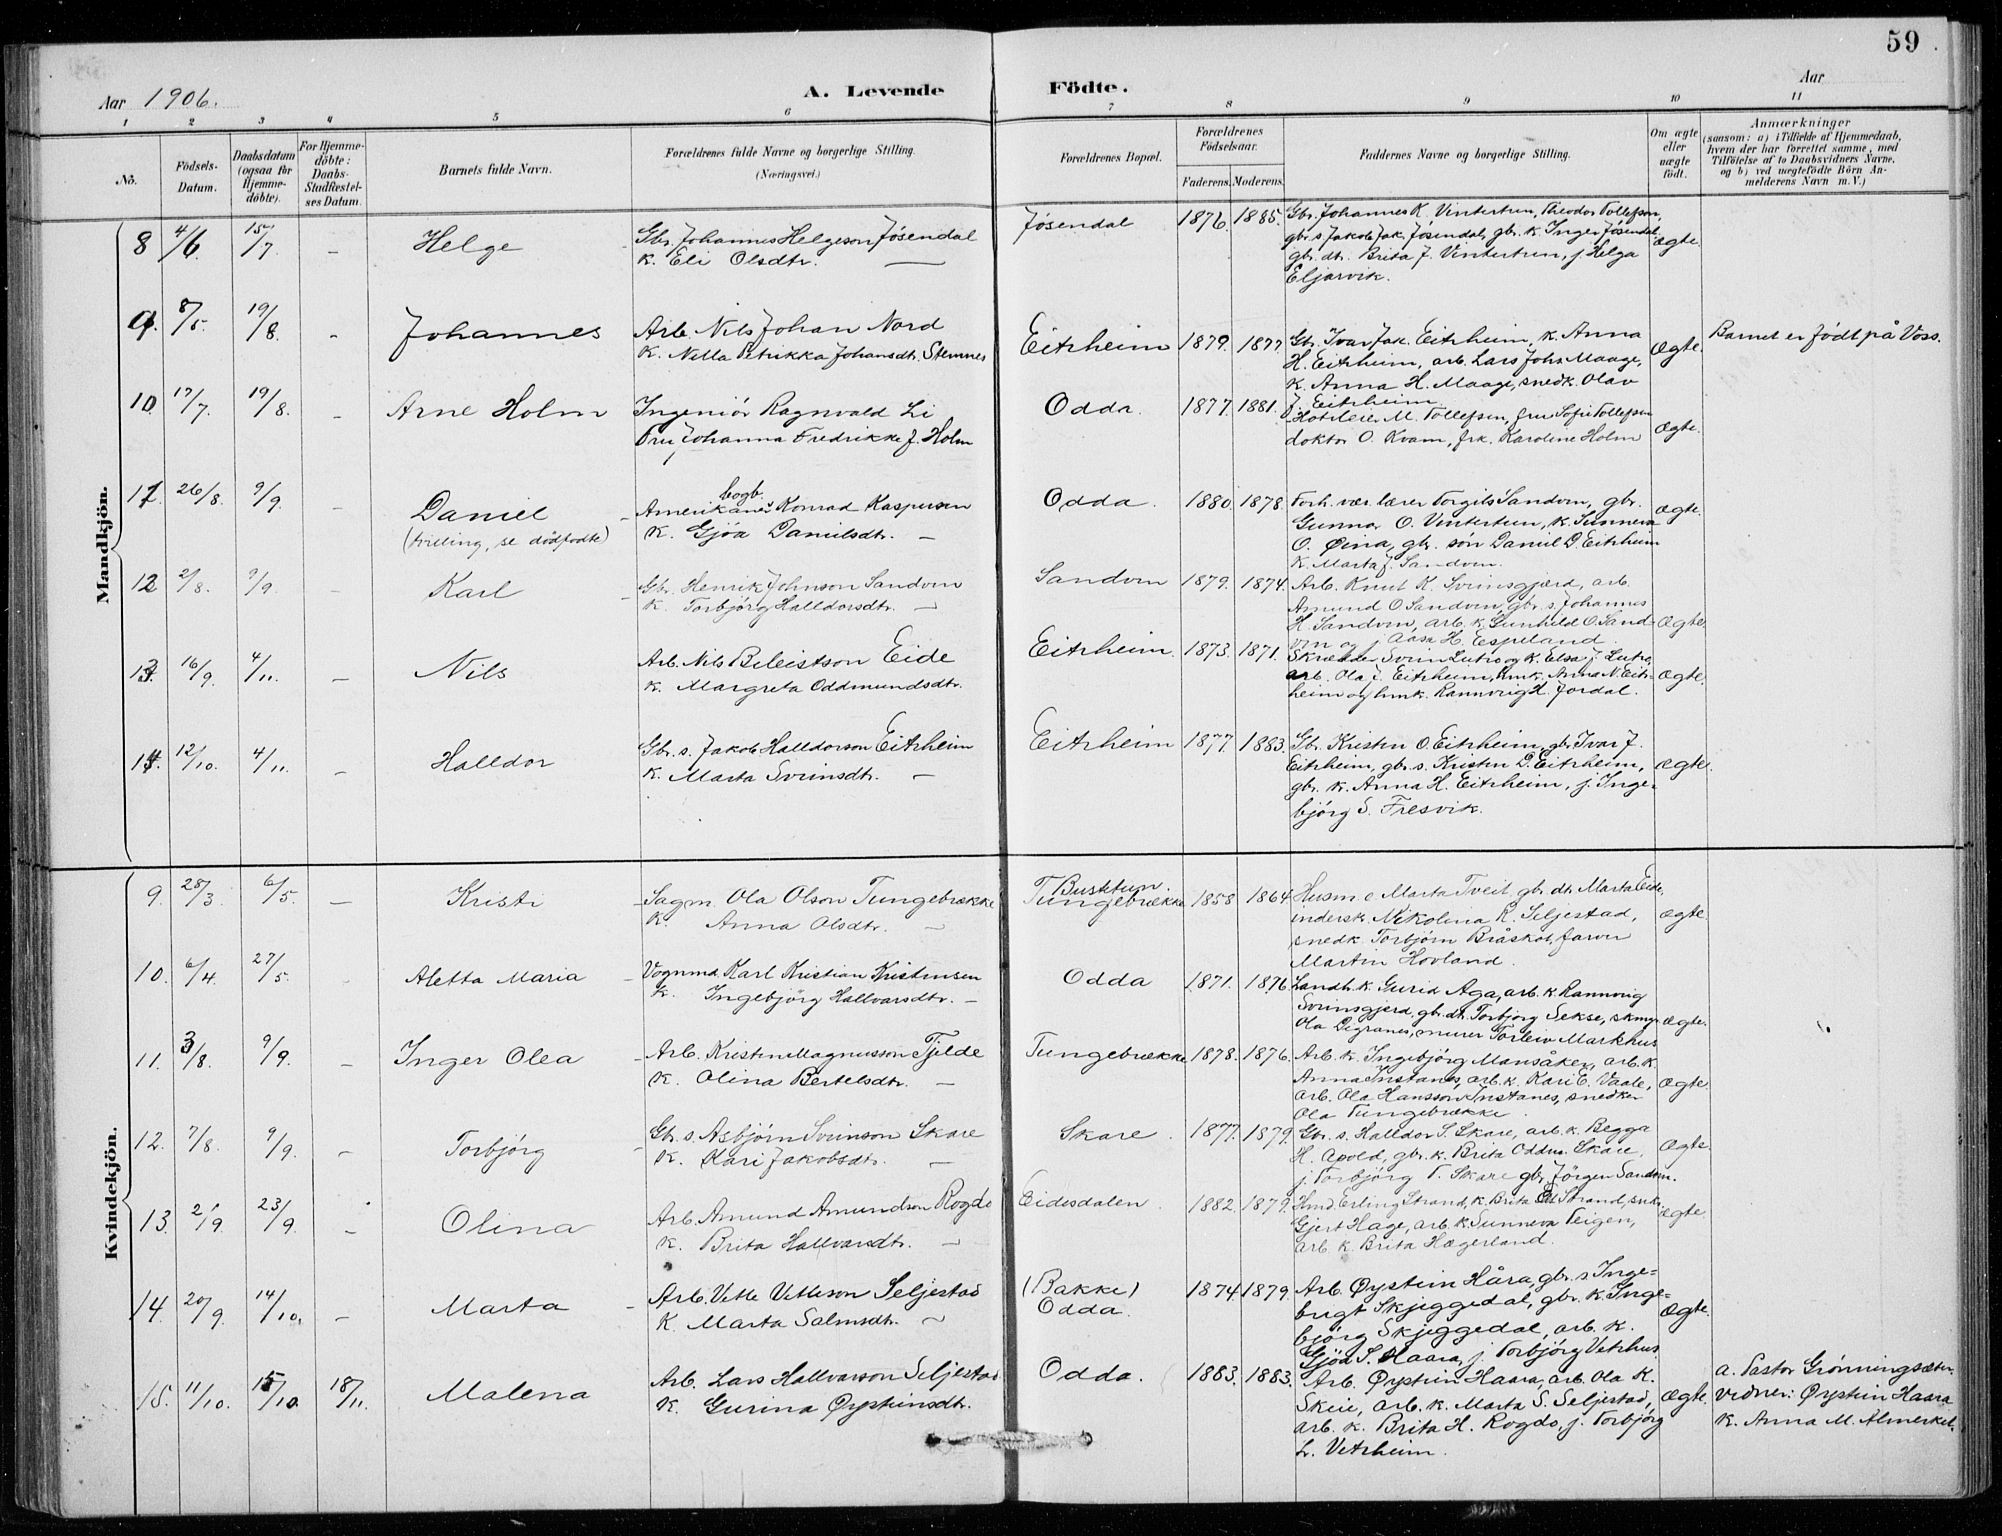 59
Aar 1906.
A. Levende Födte.
Aar
1 2 3 4 5 6 7 8 9 10 11
No.
Födsels-Datum.
Daabsdatum (ogsaa for Hjemme-döbte).
For Hjemme-döbte: Daabs-Stadfæstel-ses Datum.
Barnets fulde Navn.
Forældrenes fulde Navne og borgerlige Stilling.
(Næringsvei.)
Forældrenes Bopæl.
Forældrenes Födselsaar.
Faderens. Moderens.
Faddernes Navne og borgerlige Stilling.
Om ægte eller uægte födt.
Anmærkninger
(saasom: a) i Tilfælde af Hjemmedaab, hvem der har forrettet samme, med Tilföielse af to Daabsvidners Navne, og b) ved uægtefödte Börn An-melderens Navn m. V.)
Mandkjön.
8 4/6. 15/7 - Helge
Gbr. Johannes Helgeson Jösendal
K. Eli Olsdtr. —
Jösendal 1876. 1885.
Gbr. Johannes K. Vintertun, Theodor Tollefsen,
gbr. s Jakob Jak. Jösendal, gbr. k. Inger Jösendal,
gbr. dtr. Brita J. Vintertun, j. Helga
Eljarvik.
ægte.
9. 8/5. 19/8. - Johannes
Arb. Nils Johan Nord
K. Nilla Petrikka Johansdtr. Stemnes
Eitrheim 1879. 1877
Gbr. Ivar Jak. Eitrheim, k. Anna
H. Eitrheim, arb. Lars Johs. Maage,
k. Anna H. Maage, snedk. Olav
J. Eitrheim.
ægte.
Barnet er födt på Voss.
10. 17/7. 19/8. - Arne Holm
Ingeniör Ragnvald Li
Fru Johanna Fredrikke J. Holm
Odda. 1877. 1881.
Hoteleier M. Tollefsen, fru Sofie Tollefsen
doktor O. Kvam, frk. Karoline Holm
ægte.
11. 26/8. 9/9. - Daniel
(tvilling, se dödfödte)
bogb.
Amerikaner Konrad Kaspersen
K. Gjöa Danielsdtr. —
Odda. 1880. 1878.
Forh. vær. lærer Torgils Sandven, gbr.
Gunnar O. Vintertun, k. Sunneva
O. Øina, gbr. sön Daniel D. Eitrheim
K. Marta J. Sandven.
ægte.
12 2/8. 9/9. - Karl
Gbr. Henrik Johnson Sandven
K. Torbjörg Halldorsdtr. —
Sandven 1879. 1874.
Arb. Knut K. Sveinsgjerd, arb.
Amund O Sandven, gbr. s. Johannes
H. Sandven, arb. k. Gunhild O. Sand-
ven og j. Aasa H. Espeland.
ægte
13. 16/9. 4/11. - Nils
Arb. Nils Bileistson Eide
K. Margreta Oddmundsdtr.
Eitrheim. 1873. 1871.
Skrædder Svein Lutro og k. Elsa J. Lutro,
arb. Ola J. Eitrheim, hmk. Anna N. Eitr-
heim og hmk. Rannveig H. Jordal.
ægte.
14. 12/10. 4/11. - Halldor
Gbr. s. Jakob Halldorson Eitrheim
K. Marta Sveinsdtr. —
Eitrheim 1877. 1883.
Gbr. Kristen O. Eitrheim, gbr. Ivar J.
Eitrheim, gbr. s. Kristen D. Eitrheim,
gbr. k. Anna H. Eitrheim, j. Inge-
björg S. Fresvik.
ægte.
Kvindekjön.
9. 28/3. 6/5. - Kristi
Sagm. Ola Olson Tungebrække
K. Anna Olsdtr. —
Busktun.
Tungebrække 1858 1864
Husm. e Marta Tveit gbr. dtr. Marta Eide,
indersk. Nikolina R. Seljestad,
snedk. Torbjörn Bråskot, farver
Martin Hovland.
ægte.
10. 6/4. 27/5. Aletta Maria
Vognmd. Karl Kristian Kristensen
K. Ingebjörg Hallvarsdtr. —
Odda 1871. 1876.
Landh. k. Gurid Aga, arb. k. Rannveig
Sveinsgjerd, gbr. dtr. Torbjörg Sekse, skmgr.
Ola Digranes, murer Torleiv Markhus
ægte.
11. 3/8. 9/9. - Inger Olea
Arb. Kristen Magnusson Tjelde
K. Olina Bertelsdtr. —
Tungebrække 1878. 1876.
Arb. k. Ingebjörg Mansåker, arb. k.
Anna Instanes, arb. k. Kari E. Vaale,
arb. Ola Hansson Instanes, snedker
Ola Tungebrække.
ægte.
12. 7/8. 9/9. - Torbjörg
Gbr. s. Asbjörn Sveinson Skare
K. Kari Jakobsdtr. —
Skare. 1877. 1879.
Gbr. s. Halldor S. Skare, arb. k. Begga
H. Apold, gbr. k. Brita Oddm. Skare,
j. Torbjörg T. Skare gbr. Jörgen Sandven.
ægte.
13. 21/9. 23/9. - Olina
Arb. Amund Amundson Rogdo
K. Brita Hallvardtr. —
Eidesdalen. 1882. 1879.
Hmd. Erling Strand, k. Brita Strand, snk.
Gjert Hage, arb. k. Sunneva Teigen,
arb. k. Brita Hægerland.
ægte.
14. 20/9. 14/10. - Marta
Arb. Vetle Vetleson Seljestad
K. Marta Salmsdtr. —
(Bakke)
Odda. 1874. 1879.
Arb. Øystein Håra, gbr. s. Inge-
brigt Skjeggedal, gbr. k. Inge-
björg Skjeggedal, arb. k.
Gjöa S. Haara, j. Torbjörg Vetrhus
ægte.
15. 11/10. 15/10. 18/11. Malena
Arb. Lars Hallvarson Seljestad
K. Gurina Øysteinsdtr.
Odda. 1883. 1883.
Arb. Øystein Haara, arb. Ola K.
Skeie, arb. k. Marta S. Seljestad,
arb. k. Brita H. Rogdo, j. Torbjörg
L. Vetrheim.
ægte.
a. Pastor Grönningsæter.
Vidner: Øystein Haara
K. Anna M. Almerket.